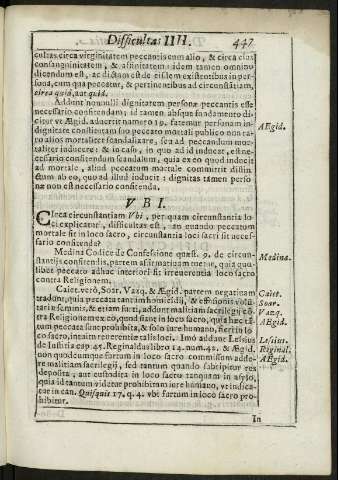 Difficulta: IIII. 447
cultas circa virginitatem peccantis cum alio, & circa eius
consanguinitatem, & affinitatem idem tamen omnino
dicendum est, ac dictum est de eisdem existentibus in per-
sona, cum qua peccatur, & pertinentibus ad circunstātiam,
circa quid, aut quid.
Addunt nonnulli dignitatem personæ peccantis esse
necessario confitendam; id tamen absque fundamento di-
citur vt Ægid. aduertit numero 19. fatentur personam in
dignitate constitutam suo peccato mortali publico non ra-
ro alios mortaliter scandalizare, seu ad peccandum mor-
taliter inducere: & in casu, in quo ad id inducet, esse ne-
cessario confitendum scandalum, quia ex eo quod inducit
ad mortale, aliud peccatum mortale committit distin-
ctum ab eo, quo ad illud inducit: dignitas tamen perso
næ non est necessario confitenda.
AEgid.
V B I.
Circa circunstantiam Vbi, per quam circunstantia lo-
ci explicatur, difficultas est, an quando peccatum
mortale sit in loco sacro, circunstantia loci sacri sit neces-
sario confitenda?
Medina Codice de Confessione quæst. 9. de circun-
stantijs confitendis, partem affirmatiuam tuetur, quia quod
libet peccato adhæc interiori sit irreuerentia loco sacro
contra Religionem.
Medina.
Caiet. verò, Soar. Vazq. & Ægid. partem negatiuam
tradunt, quia peccata tantum homicidij, & effusionis volun-
tarij seminis, & etiam furti, addunt malitiam sacrilegij cō-
tra Religionem ex eo, quod fiant in loco sacro, quia hæc tā-
tum peccata sunt prohibita, & solo iure humano, fieri in lo-
co sacro, intuitu reuerentiæ talis loci. Imò addunt Lesius
de Iustitia cap. 45. Reginaldus libro 14. num. 42. & Ægid.
non quodcumque furtum in loco sacro commissum adde-
re malitiam sacrilegij, sed tantum quando surripitur res
deposita, aut custodita in loco sacro tanquam in asylo,
quia id tantùm videtur prohibitum iure humano, vt indica-
tur in can. Quisquis 17. q. 4. vbi furtum in loco sacro pro-
hibitur.
Caiet.
Soar.
Vazq.
AEgid.
Lesius.
Riginal.
AEgid.
In